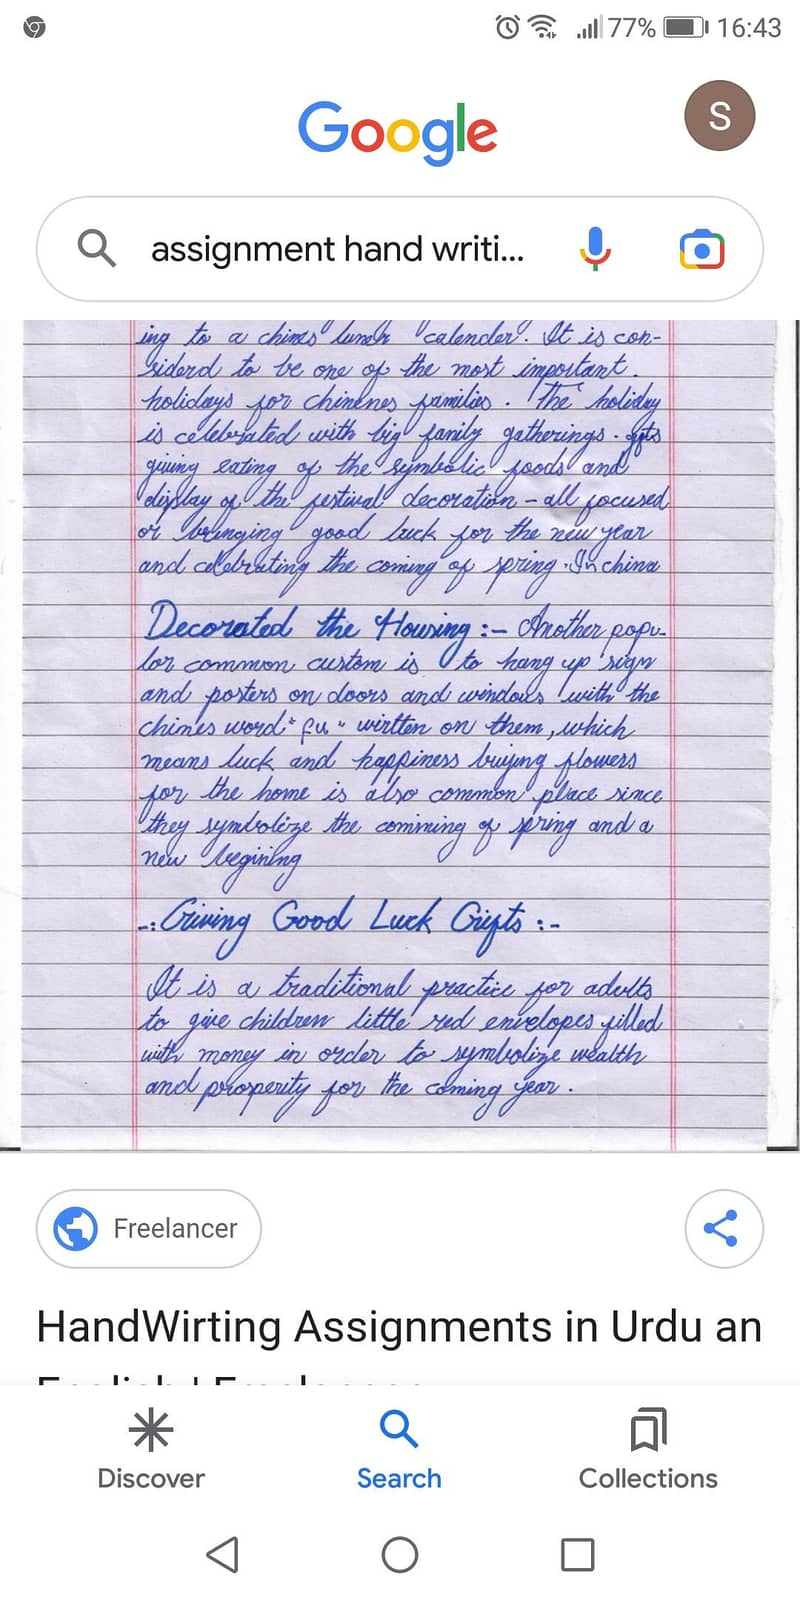 77% 16:43
Google
S
assignment hand writi...
ing to a chines lunar calender. It is con-
siderd to be one of the most important.
holidays for chinenes families. The holiday
is celebrated with big family gatherings. gifts
giving eating of the symbolic foods and
display of the festival decoration - all focused
or bringing good luck for the new year
and celebrating the coming of spring. In china
Decorated the Housing :- Another popu-
lar common custom is to hang up sign
and posters on doors and windows with the
chines word "fu" wirtten on them, which
means luck and happiness buying flowers
for the home is also common place since
they symbolize the comining of spring and a
new begining
-: Giving Good Luck Gifts :-
It is a traditional practice for adults
to give children little red envelopes filled
with money in order to symbolize wealth
and prosperity for the coming year.
Freelancer
HandWirting Assignments in Urdu an
English | Freelancer
Discover Search Collections